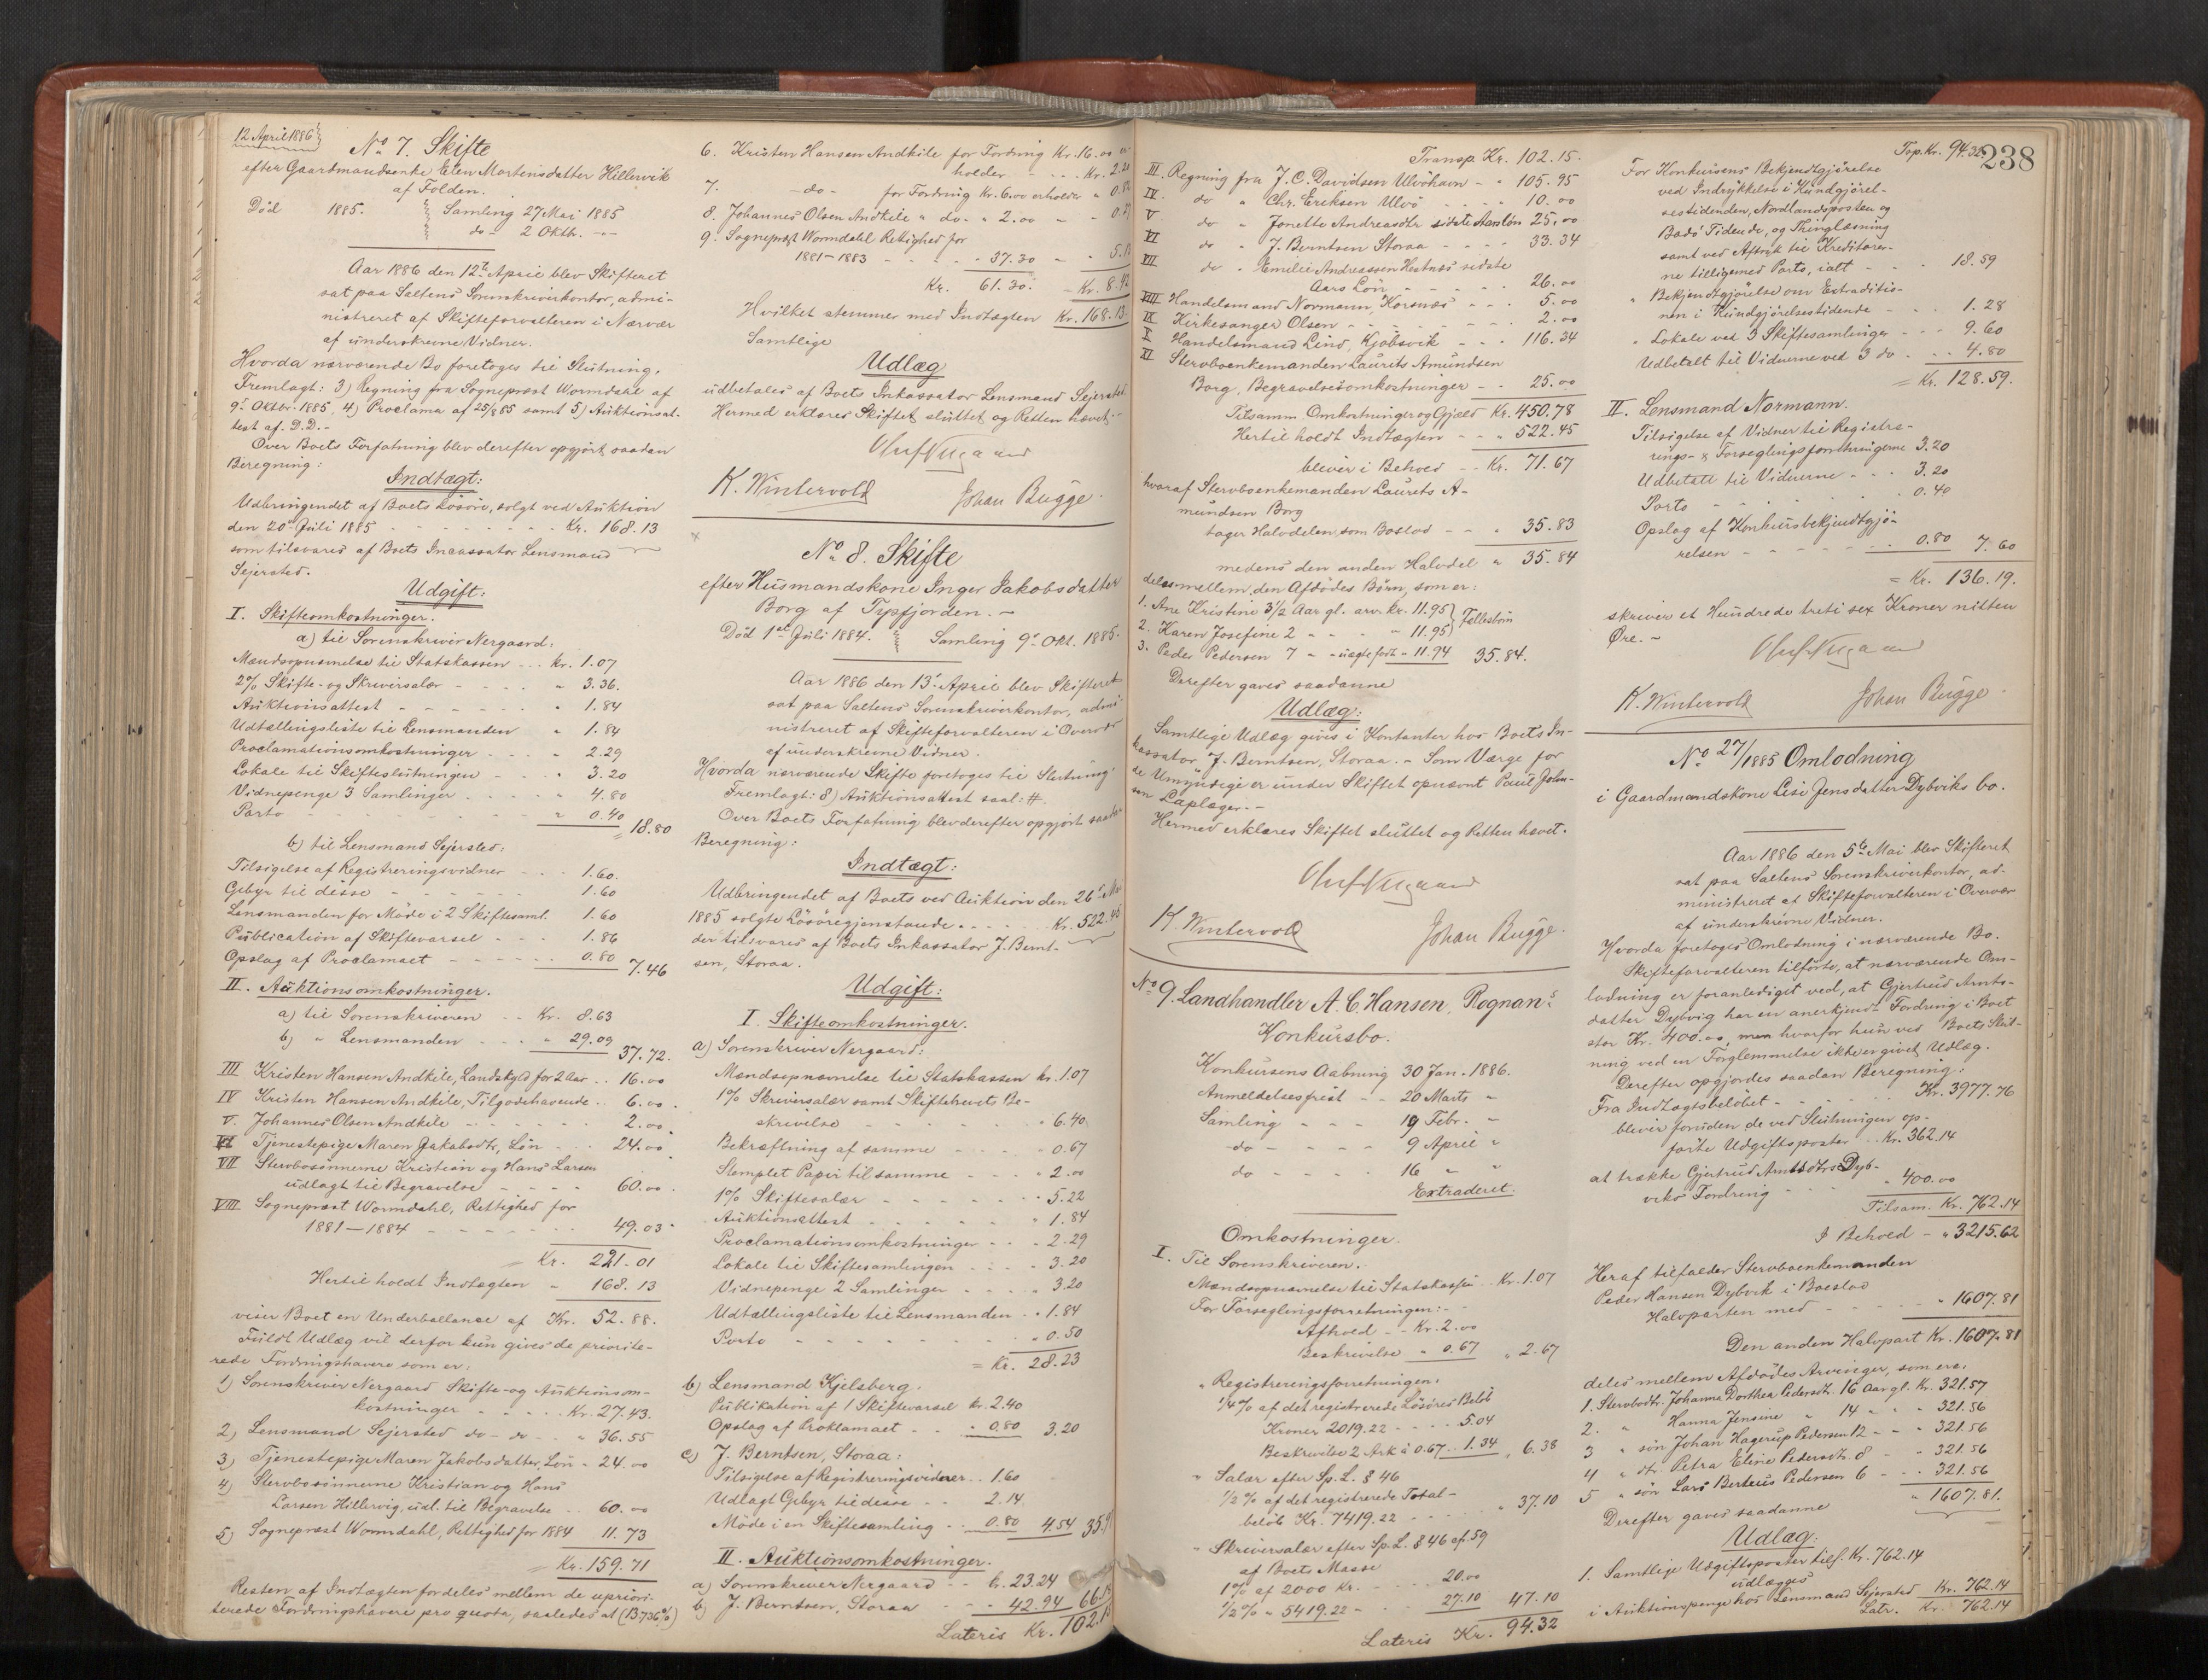 12 April 1886
No 7. Skifte
efter Gaardmandsenke Elen Mortensdatter Hillervik
af Folden.
Död 1885. Samling 27 Mai 1885
do - 2 Oktb. -"-
Aar 1886 den 12te April blev Skifteret
sat paa Saltens Sorenskriverkontor, admi-
nistreret af Skifteforvalteren i Nærvær
af underskrevne Vidner.
Hvorda nærværende Bo foretoges til Slutning.
Fremlagt: 3) Regning fra Sogneprest Wormdahl af
9d Oktbr. 1885, 4) Proclama af 25/8 85 samt 5) Auktionsat-
test af. D.D.-
Over Boets Forfatning blev derefter opgjort saadan
Beregning:
Indtægt:
Udbringendet af Boets Lösöre, solgt ved Auktion
den 20de Juli 1885 - - - Kr. 168.13
som tilsvares af Boets Incassator Lensmand
Sejersted.
Udgift:
I. Skifteomkostninger.
a) til Sorenskriver Nergaard.
Mændsopnævnelse til Statskassen - - Kr. 1.07
2% Skifte- og Skriversalær - - " 3.36.
Auktionsattest - - " 1.84
Udtællingsliste til Lensmanden " 1.84
Proclamationsomkostninger - - " 2.29
Lokale til Skifteslutningen - - " 3.20
Vidnepenge 3 Samlinger - - " 4.80
Porto - - " 0.40
= 18.80
b) til Lensmand Sejersted:
Tilsigelse af Registreringsvidner - - 1.60.
Gebyr til disse - - 1.60
Lensmanden for Möde i 2 Skiftesaml. 1.60
Publication af Skiftevarsel - - 1.86
Opslag af Proclamaet - - 0.80 7.46
II. Auktionsomkostninger.
a) til Sorenskriveren - - Kr. 8.63
b) " Lensmanden - - " 29.09
37.72.
III Kristen Hansen Andkile, Landskyld for 2 Aar - - 16.00
IV Kristen Hansen Andkile, Tilgodehavende - - 6.00.
V. Johannes Olsen Andkile - - 2.00.
VI Tjenestepige Maren Jakobsdtr, Lön - - 24.00
VII Stervbosönnerne Kristian og Hans Larsen
udlagt til Begravelse - - 60.00.
VIII Sogneprest Wormdahl, Rettighed for
1881-1884 - - 49.03.
= Kr. 221.01
Hertil holdt Indtægten - 168.13
viser Boet en Underballance af Kr. 52.88.
Fuldt Udlæg vil derfor kun gives de priorite-
rede Fordringshavere som er:
1) Sorenskriver Nergaard Skifte- og Auktionsom-
kostninger - - Kr. 27.43.
2) Lensmand Sejersted do - do - - " 36.55
3) Tjenestepige Maren Jakobsdatter, Lön - 24.00
4) Stervbosönnerne Kristian og Hans
Larsen Hillervig, udl. til Begravelse - - 60.00
5) Sogneprest Wormdahl, Rettighed for 1884 11.73
= Kr. 159.71
Resten af Indtægten fordeles mellem de upriori-
terede Fordringshavere pro quota, saaledes at (13.736%)
6. Kristen Hansen Andkile for Fordring Kr. 16.00 er-
holder - - Kr. 2.20
7. - do - for Fordring Kr. 6.00 erholder " 0.82
8. Johannes Olsen Andkile " do. " 2.00 - "
9. Sogneprest Wormdahl Rettighed for
1881-1883 - - 37.30 - "
Kr. 61.30. = Kr. 8.42
Hvilket stemmer med Indtægten Kr. 168.13.
Samtlige
Udlæg
udbetales af Boets Inkassator Lensmand Sejersted.
Hermed erklæres Skiftet sluttet og Retten hævet.-
K. Wintervold Johan Bugge.
No 8. Skifte
efter Husmandskone Inger Jakobsdatter
Borg af Tysfjorden. -
Död 1ste Juli 1884. Samling 9de Okt. 1885.
Aar 1886 den 13de April blev Skifteret
sat paa Saltens Sorenskriverkontor, admi-
nistreret af Skifteforvalteren i Overvær
af underskrevne Vidner.
Hvorda nærværende Skifte foretoges til Slutning.
Fremlagt: 8) Auktionsattest saal: #.
Over Boets Forfatning blev derefter opgjort saadan
Beregning:
Indtægt:
Udbringendet af Boets ved Auktion den 26de
1885 solgte Lösöregjenstande. - - Kr. 522.45
der tilsvares af Boets Inkassator J. Bernt-
sen, Storaa.
Udgift:
I. Skifteomkostninger.
a) Sorenskriver Nergaard:
Mændsopnævnelse til Statskassen kr. 1.07
1% Skriversalær samt Skiftebrevets Be-
skrivelse - - " 6.40.
Bekræftning af samme - - " 0.67
Stemplet Papir til samme - - " 2.00
1% Skiftesalær - - " 5.22
Auktionsattest - - " 1.84
Proclamationsomkostninger - - " 2.29
Lokale til Skiftesamlingen - - " 3.20
Vidnepenge 2 Samlinger - - " 3.20
Udtællingsliste til Lensmanden - " 1.84
Porto - - " 0.50
= Kr. 28.23
b) Lensmand Kjelsberg.
Publikation af 1 Skiftevarsel kr. 2.40
Opslag af Proklamaet - - " 0.80 3.20
c) J. Berntsen, Storaa:
Tilsigelse af Registreringsvidner - - 1.60
Udlagt Gebyr til disse - - 2.14
Möde i en Skiftesamling - - 0.80 4.54
II. Auktionsomkostninger.
a) Sorenskriver Nergaard - - kr. 23.24
b) J. Berntsen, Storaa - - " 42.94
Lateris Kr. 102.15
Transp. Kr. 102.15.
III. Regning fra J. C. Davidsen Ulvöhavn - " 105.95
IV. do " Chr. Eriksen Ulvö - - 10.00
V do " Jonette Andreasdtr sidste Aarslön 25.00
VI do " J. Berntsen Storaa - - 33.34
VII do " Emelie Andreassen Hestnæs sidste
Aars Lön - - 26.00
VIII Handelsmand Normann, Korsnæs - - 5.00
IX Kirkesanger Olsen - - 2.00
X Handelsmand Lind, Kjöbsvik - - 116.34
XI Stervboenkemanden Laurits Amundsen
Borg, Begravelsesomkostninger - - 25.00
Tilsamm. Omkostninger og Gjæld Kr. 450.78
Hertil holdt Indtægten - - " 522.45
bliver i Behold - - Kr. 71.67
hvoraf Stervboenkemanden Laurits A-
mundsen Borg
tager Halvdelen som Boslod - - " 35.83
medens den anden Halvdel " 35.84
deles mellem den Afdödes Börn, som er:
1. Ane Kristine 3 1/2 Aar gl. arv. kr. 11.95 } Fællesbörn
2. Karen Josefine 2 " - " " 11.95
3. Peder Pedersen 7 " - uægtefödt " 11.94 35.84.
Derefter gaves saadanne
Udlæg:
Samtlige Udlæg gives i Kontanter hos Boets In-
kassator J. Berntsen, Storaa. - Som Værge for
de Umyndige er under Skiftet opnævnt Paul John-
sen Laplæger.-
Hermed erklæres Skiftet sluttet og Retten hævet.
K. Wintervold Johan Bugge.
No 9. Landhandler A. C. Hansen, Rognan's
Konkursbo.
Konkursens Aabning 30 Jan. 1886.
Anmeldelsesfrist - - 20 Marts "
Samling - - 19 Febr. "
do - - 9 April "
do - - 16 " "
Extraderet.
Omkostninger.
I. Til Sorenskriveren.
Mændsopnævnelse til Statskassen - - Kr. 1.07
For Forseglingsforretningen: -
Afhold - - Kr. 2.00
Beskrivelse " 0.67 " 2.67
" Registreringsforretningen.
1/4% af det registrerede Lösöres Belöb
Kroner 2019.22 - - 5.04
Beskrivelse 2 Ark à 0.67 - - 1.34 " 6.38
" Salær efter Sp. L. § 46
1/2% af det registrerede Total-
belöb Kr. 7419.22 - - " 37.10
" Skriversalær efter Sp. L. § 46 cf. 59
af Boets Masse
1% af 2000 Kr. - - 20.00
1/2% " 5419.22 - - 27.10 47.10
Lateris Kr. 94.32
Tsp. Kr. 94.32.
238
For Konkursens Bekjendtgjörelse
ved Indrykkelse i Kundgjörel-
sestidenden, Nordlandsposten og
Bodö Tidende, og Thinglæsning
samt ved Aftryk til Kreditorer-
ne tilligemed Porto, ialt - - 18.59
" Bekjendtgjörelse om Extraditio-
nen i Kundgjörelsestidende - - 1.28
" Lokale ved 3 Skiftesamlinger - - 9.60
Udbetalt til Vidnerne ved 3 do - - 4.80
= Kr. 128.59.
II. Lensmand Normann.
Tilsigelse af Vidner til Registre-
rings- & Forseglingsforretningerne 3.20
Udbetalt til Vidnerne - - 3.20
Porto - - 0.40
Opslag af Konkursbekjendtgjö-
relsen - - 0.80 7.60
= Kr. 136.19.
skriver et Hundrede treti sex Kroner nitten
Øre. -
K. Wintervold Johan Bugge.
No 27/1885 Omlodning
i Gaardmandskone Lise Jensdatter Dybviks bo.
Aar 1886 den 5te Mai blev Skifteret
sat paa Saltens Sorenskriverkontor, ad-
ministreret af Skifteforvalteren i Overvær
af underskrevne Vidner.
Hvorda foretoges Omlodning i nærværende Bo.
Skifteforvalteren tilförte, at nærværende Om-
lodning er foranlediget ved, at Gjertrud Arnts-
datter Dybvig har en anerkjendt Fordring i Boet
stor Kr. 400.00, men hvorfor hun ved Boets Slut-
ning ved en Forglemmelse ikke er givet Udlæg.
Derefter opgjordes saadan Beregning:
Fra Indtægtsbelöbet - - Kr. 3977.76
bliver foruden de ved Slutningen op-
förte Udgiftsposter - - Kr. 362.14
at trække Gjertrud Arntsdtrs Dyb-
viks Fordring - - " 400.00
Tilsam. Kr. 762.14
I Behold - " 3215.62
Heraf tilfalder Stervboenkemanden
Peder Hansen Dybvik i Boeslod
Halvparten med - - " 1607.81
Den anden Halvpart Kr. 1607.81
deles mellem Afdödes Arvinger, som ere.
1. Stervbodtr. Johanna Dorthea Pedersdtr. 16 Aar gl. Kr. 321.57
2. " Hanna Jensine " 14 " - " 321.56
3 " sön Johan Hagerup Pedersen 12 - - " 321.56
4 " dtr. Petra Eline Pedersdtr. 8 - - " 321.56
5 " sön Lars Berteus Pedersen 6 - - 321.56
" 1607.81.
Derefter gaves saadanne
Udlæg.
1. Samtlige Udgiftsposter tils. Kr. 762.14
udlægges
i Auktionspenge hos Lensmand Sejersted Kr. 762.14
Latr. Kr. 762.14